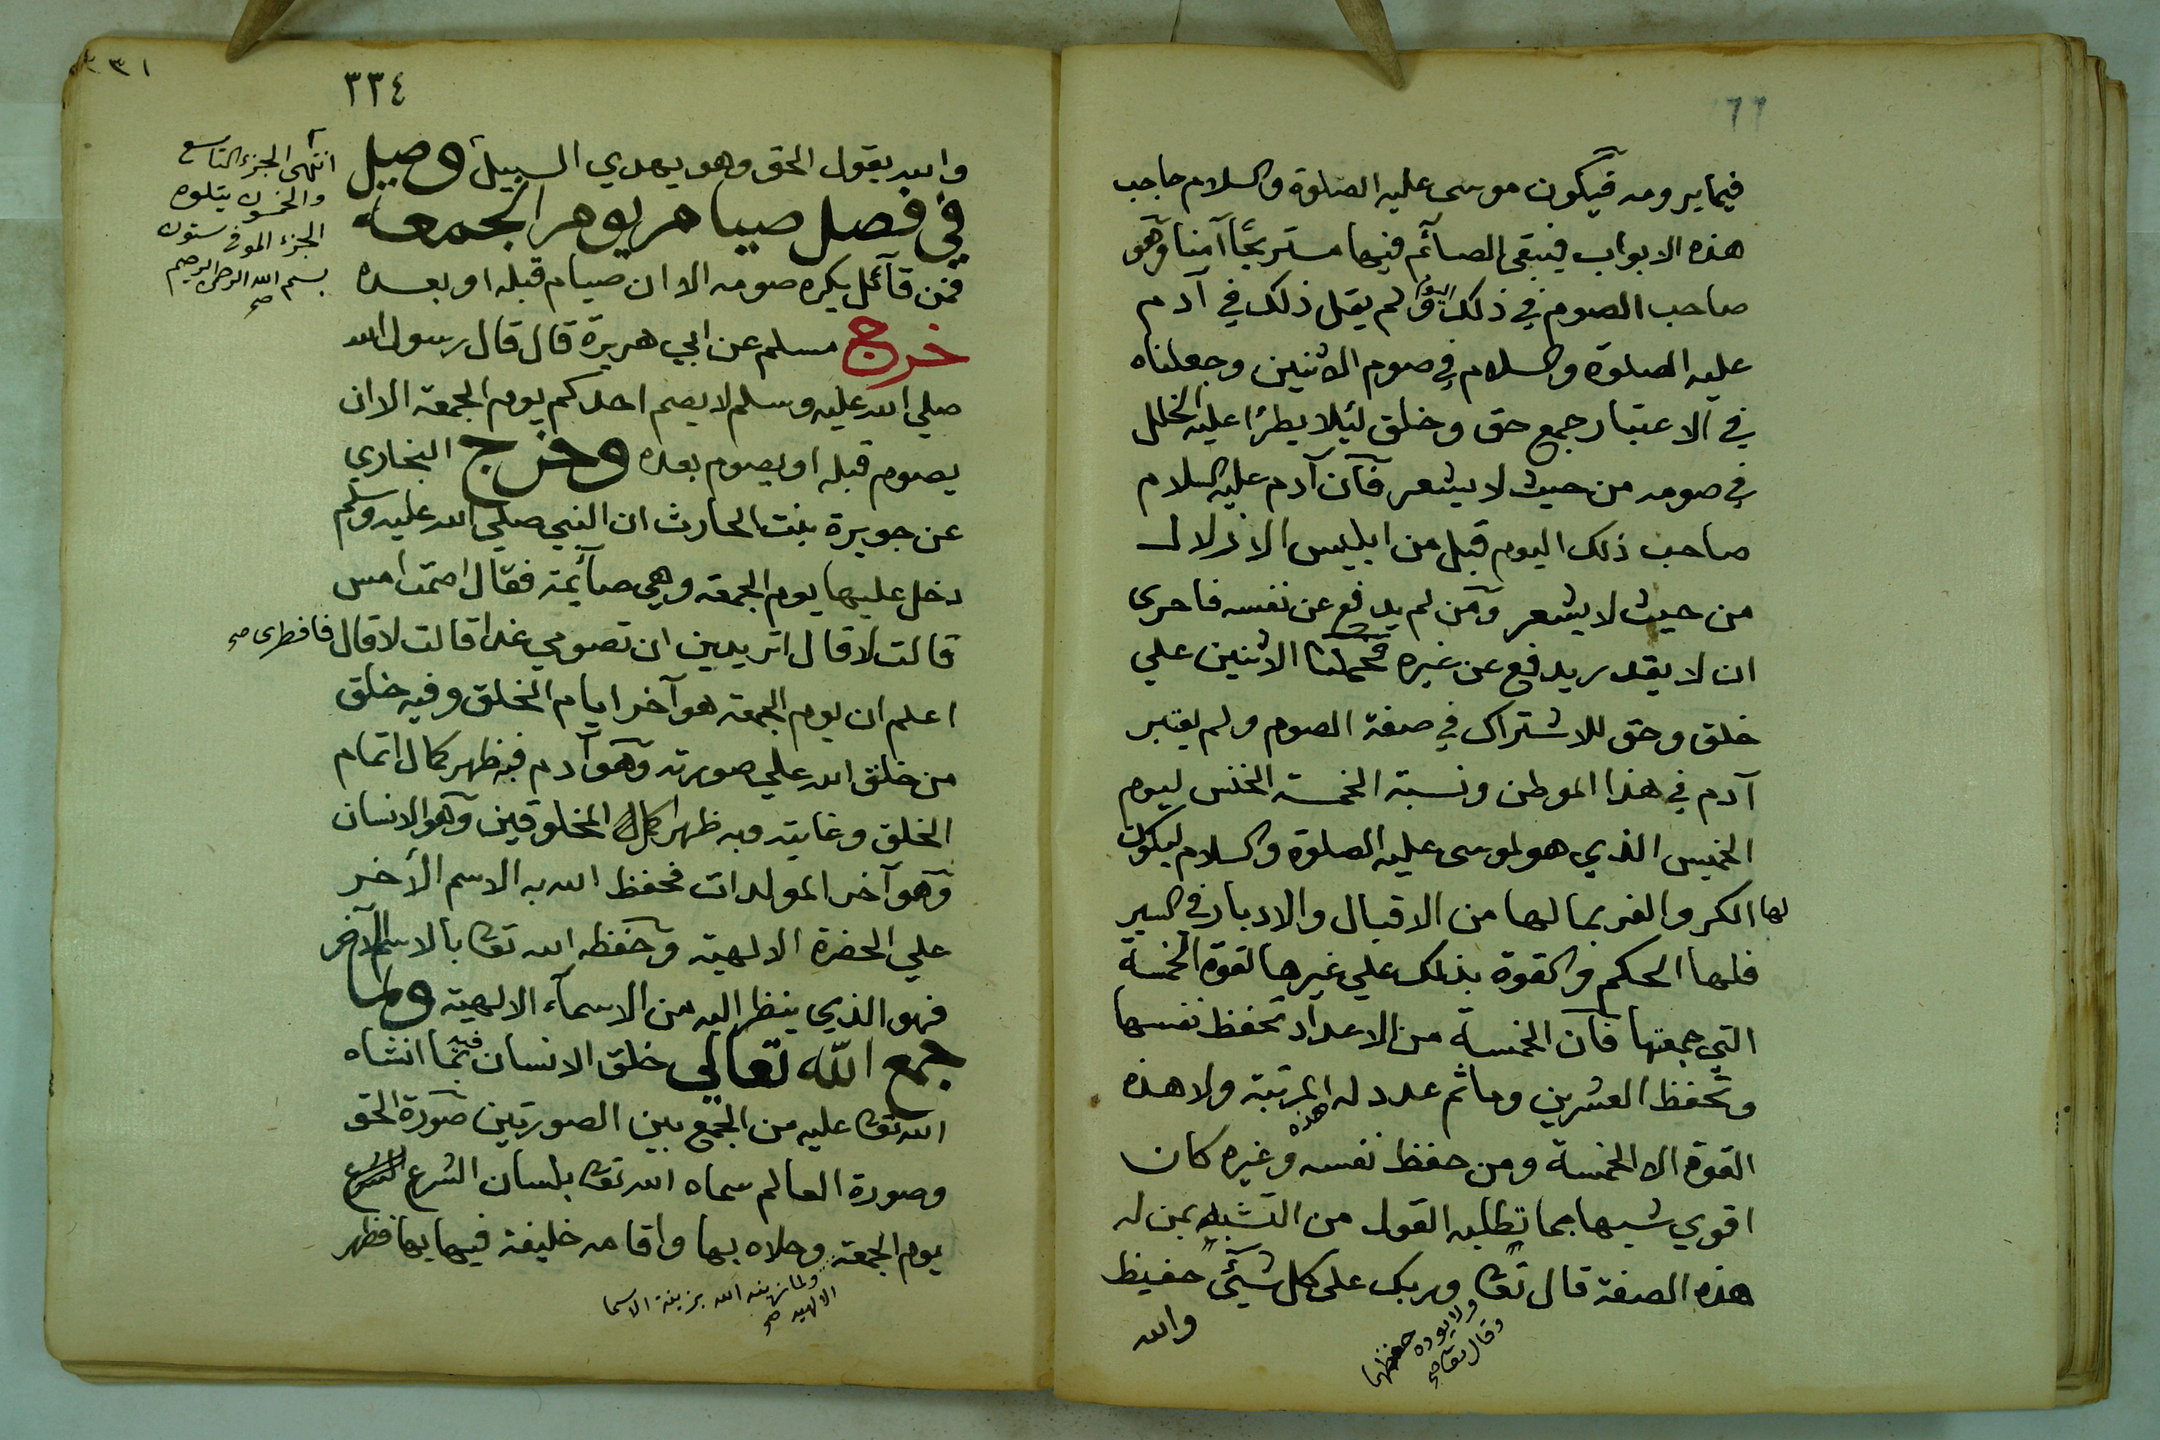 ٦٦
فيما يرومه فيكون موسى عليه الصلوة والسلام حاجب
هذه الابواب فيبقى الصائم فيها مستريحًا آمنا وهو
صاحب الصوم في ذلك اليوم ولم يقل ذلك في آدم
عليه الصلوة والسلام في صوم الاثنين وجعلناه
في الاعتبار جمع حق وخلق ليلا يطرا عليه الخلل
في صومه من حيث لا يشعر فان آدم عليه السلام
صاحب ذلك اليوم قبل من ابليس الازلال
من حيث لا يشعر ومن لم يدفع عن نفسه فاحرى
ان لا يقدر يدفع عن غيره فحملنا الاثنين علي
خلق وحق للاشتراك في صفة الصوم ولم يعتبر
آدم في هذا الموطن ونسبة الخمسة الخنس ليوم
الخميس الذي هو لموسى عليه الصلوة والسلام ليكون
لها الكر والفر بما لها من الاقبال والادبار في السير
فلها الحكم والقوة بذلك علي غيرها لقوة الخمسة
التي جمعتها فان الخمسة من الاعداد تحفظ نفسها
وتحفظ العشرين وما ثم عدد له هذه المرتبة ولا هذه
القوة الا الخمسة ومن حفظ نفسه وغيره كان
اقوي شبها مما تطلبه القول من التشبه بمن له
هذه الصفة قال تعا وربك على كل شيئ حفيظ
وقال تعا
ولا يوده حفظهما صح
والله
٣٣١
٣٣٤
والله يقول الحق وهو يهدي السبيل وصل
في فصل صيام يوم الجمعة
فمن قآئل يكره صومه الا ان صيام قبله او بعده
خرج مسلم عن ابي هريرة قال قال رسول الله
صلي الله عليه وسلم لا يصم احدكم يوم الجمعة الا ان
يصوم قبله او يصوم بعده وخرج البخاري
عن جويرة بنت الحارث ان النبي صلي الله عليه وسلم
دخل عليها يوم الجمعة وهي صآئمة فقال اصمت امس
قالت لا قال اتريدين ان تصومي غدا قالت لا قال فافطرى صح
اعلم ان يوم الجمعة هو آخر ايام الخلق وفيه خلق
من خلق الله علي صورته وهو آدم فبه ظهر كمال اتمام
الخلق وغايته وبه ظهر اكمل المخلوقين وهو الانسان
وهو آخر المولدات فحفظ الله به الاسم الآخر
علي الحضرة الالهية وحفظه الله تعا بالاسم الآخر
فهو الذي ينظر اليه من الاسمآء الالهية ولما
جمع الله تعالي خلق الانسان فيه بما انشاه
الله تعا عليه من الجمع بين الصورتين صورة الحق
وصورة العالم سماه الله تعا بلسان الشرع
يوم الجمعة وحلاه بها واقامه خليفة فيها بها فظهر
ولما زينه الله بزينة الاسما
الالهية صح
انتهى الجزء التاسع
والخمسون يتلوه
الجزء الموفى ستون
بسم الله الرحمن الرحيم
صح